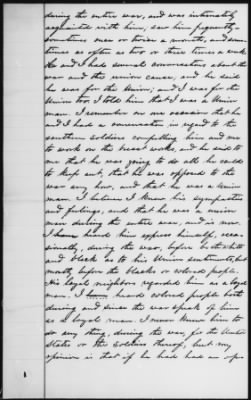 during the entire war, and was intimately
acquainted with him, saw him frequently
sometimes once or twice a month, and some-
times as often as two or three times a week
He and I had several conversations about the
war and the union cause, and he said
he was for the Union, and I was for the
Union too I told him that I was a Union
man. I remember on one occasion that he
and I had a conversation in regard to the
southern soldiers compelling him and me
to work on the breast works, and he said to
me that he was going to do all he could
to keep out, that he was opposed to the
war any how, and that he was a union
man. I believe I knew his sympathies
and feelings, and that he was a union
man during the entire war and is now
I have heard him express himself, occa-
sionally, during the war, before both white
and black as to his Union sentiments, but
mostly before the blacks or colored people.
His loyal neighbors regarded him as a loyal
man. I have heard colored people both
during and since the war speak of him
as a loyal man. I never knew him to
do any thing, during the war, for the United
States or the soldiers thereof, but my
opinion is that if he had had an opo